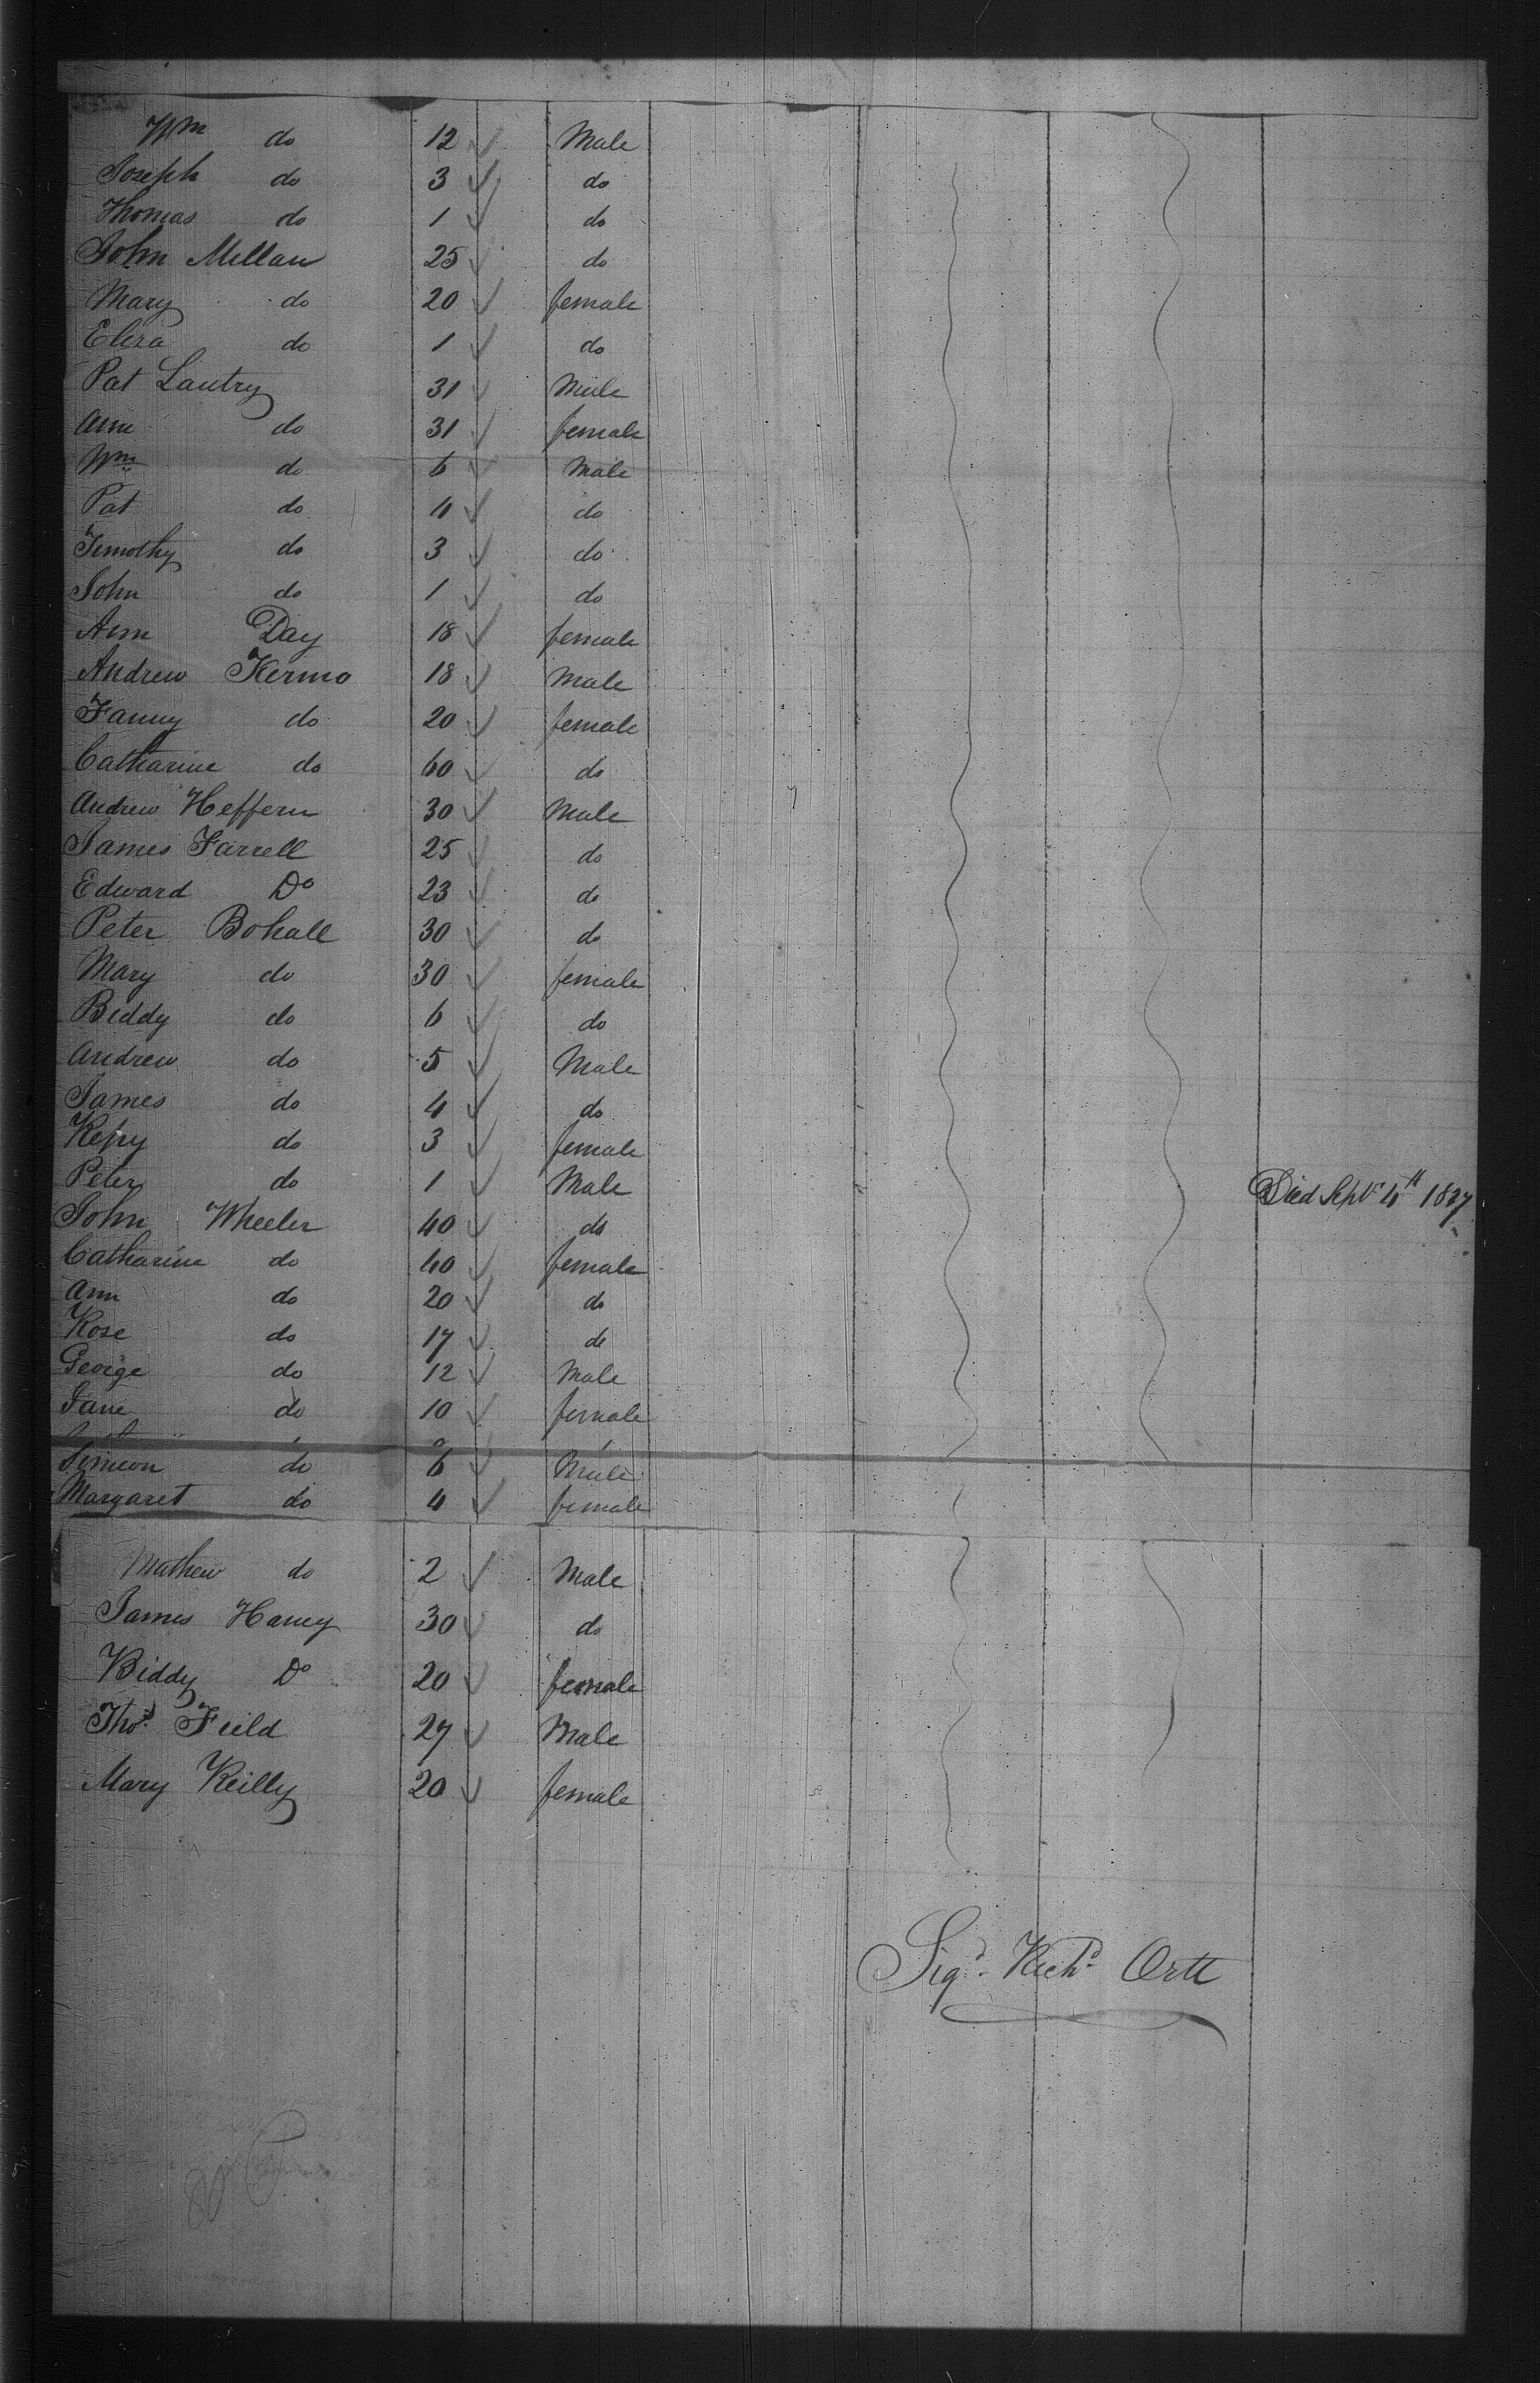 Wm do 12 Male
Joseph do 3 do
Thomas do 1 do
John Millan 25 do
Mary do 20 female
Eliza do 1 do
Pat Lantry 31 Male
Ann do 31 female
Wm do 6 Male
Pat do 4 do
Timothy do 3 do
John do 1 do
Ann Day 18 female
Andrew Kermo 18 Male
Fanny do 20 female
Catharine do 60 do
Andrew Heffern 30 Male
James Farrell 25 do
Edward Do 23 do
Peter Bohall 30 do
Mary do 30 female
Biddy do 6 do
Andrew do 5 Male
James do 4 do
do 3 female
Peter do 1 Male Died Sept 4th 1827
John Wheeler 40 do
Catharine do 40 female
Ann do 20 do
Rose do 17 do
George do 12 Male
Jane do 10 female
Simeon do 6 Male
Margaret do 4 female
Mathew do 2 Male
James Haney 30 do
Biddy Do 20 female
Thos Feild 27 Male
Mary Reilly 20 female
Sigd. Richd Ortt